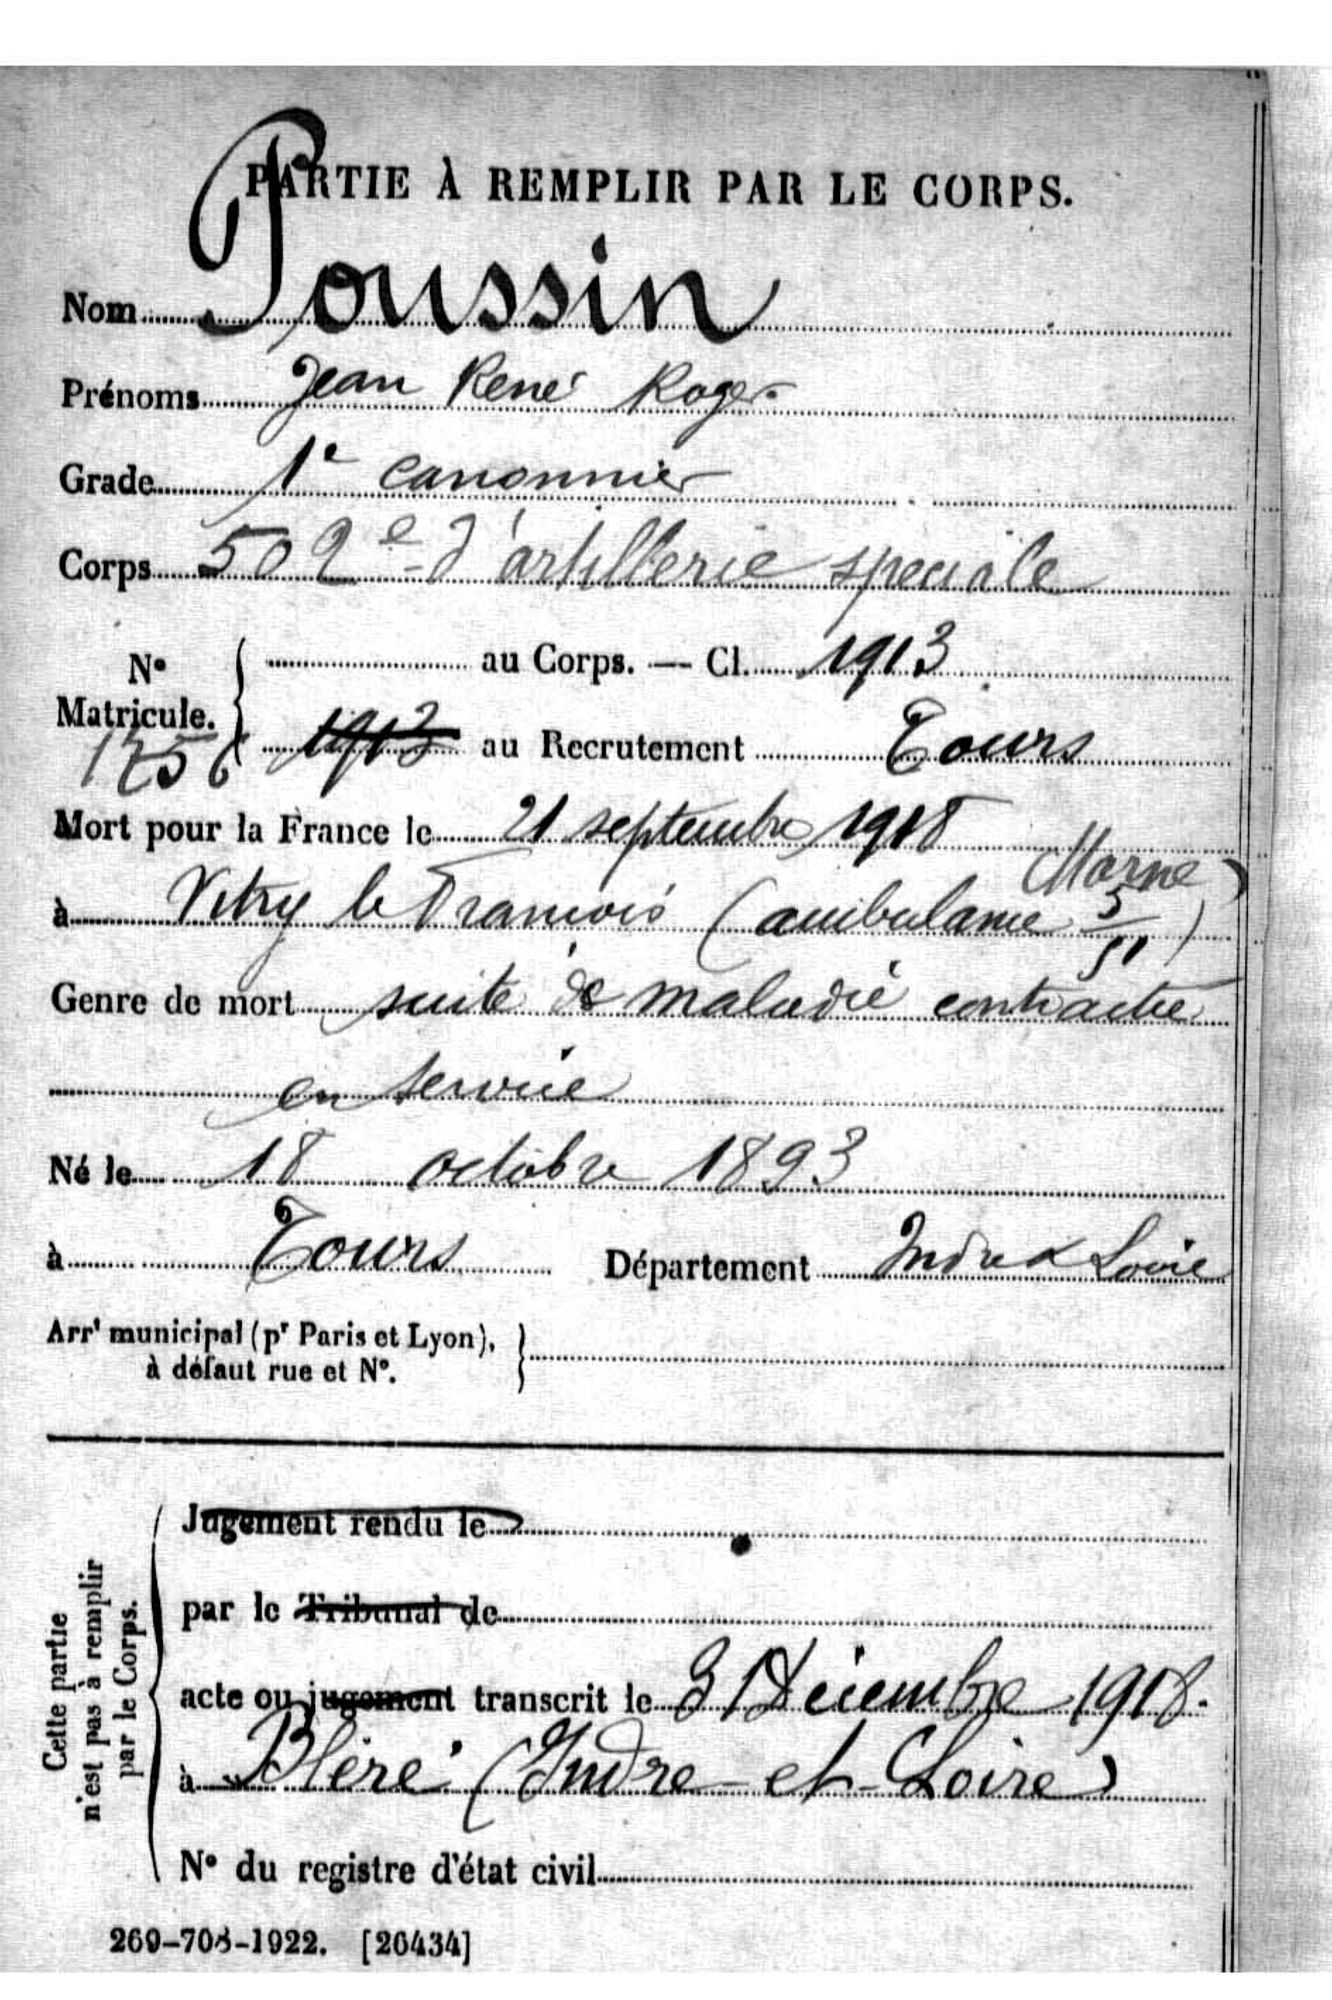 PARTIE À REMPLIR PAR LE CORPS.
Nom Poussin
Prénoms Jean René Roger
Grade 1e canonnier
Corps 502e d'artillerie speciale
N° Matricule. au Corps. — Cl. 1913
1756 1913 au Recrutement Tours
Mort pour la France le 21 septembre 1918
Marne
à Vitry le François (ambulance 5/51)
Genre de mort suite de maladie contractée
en service
Né le 18 octobre 1893
à Tours Département Indre & Loire
Arrt municipal (pr Paris et Lyon),
à défaut rue et N°.
Cette partie
n'est pas à remplir
par le Corps.
Jugement rendu le
par le Tribunal de
acte ou jugement transcrit le 31 Décembre 1918.
à Bléré (Indre-et-Loire)
N° du registre d'état civil
269-708-1922. [26434]